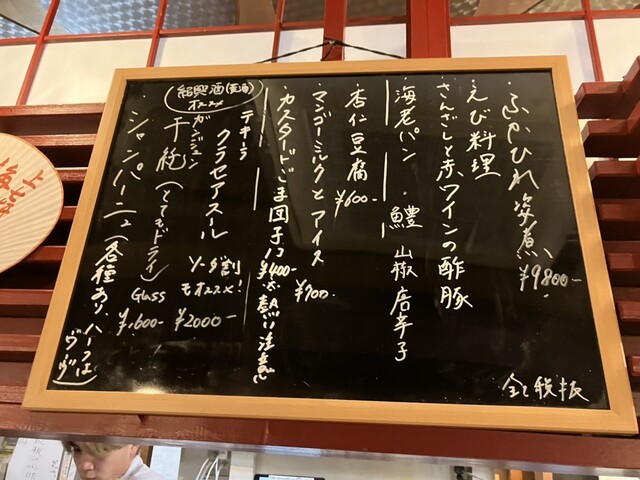 ふかひれ姿煮 ¥9800-
えび料理
さんざしと赤ワインの酢豚
海老パン・鱧 山椒唐辛子
杏仁豆腐 ¥600-
マンゴーミルクとアイス ¥700.
カスタードごま団子 1コ ¥400- 熱い注意
テキーラ
クラセアスール ソーダ割もオススメ! ¥2000-
ガンジュン
干純(とてもドライ) Glass ¥1,600-
シャンパーニュ(各種あり、ハーフはヴーヴ)
紹興酒 オススメ
全て税抜